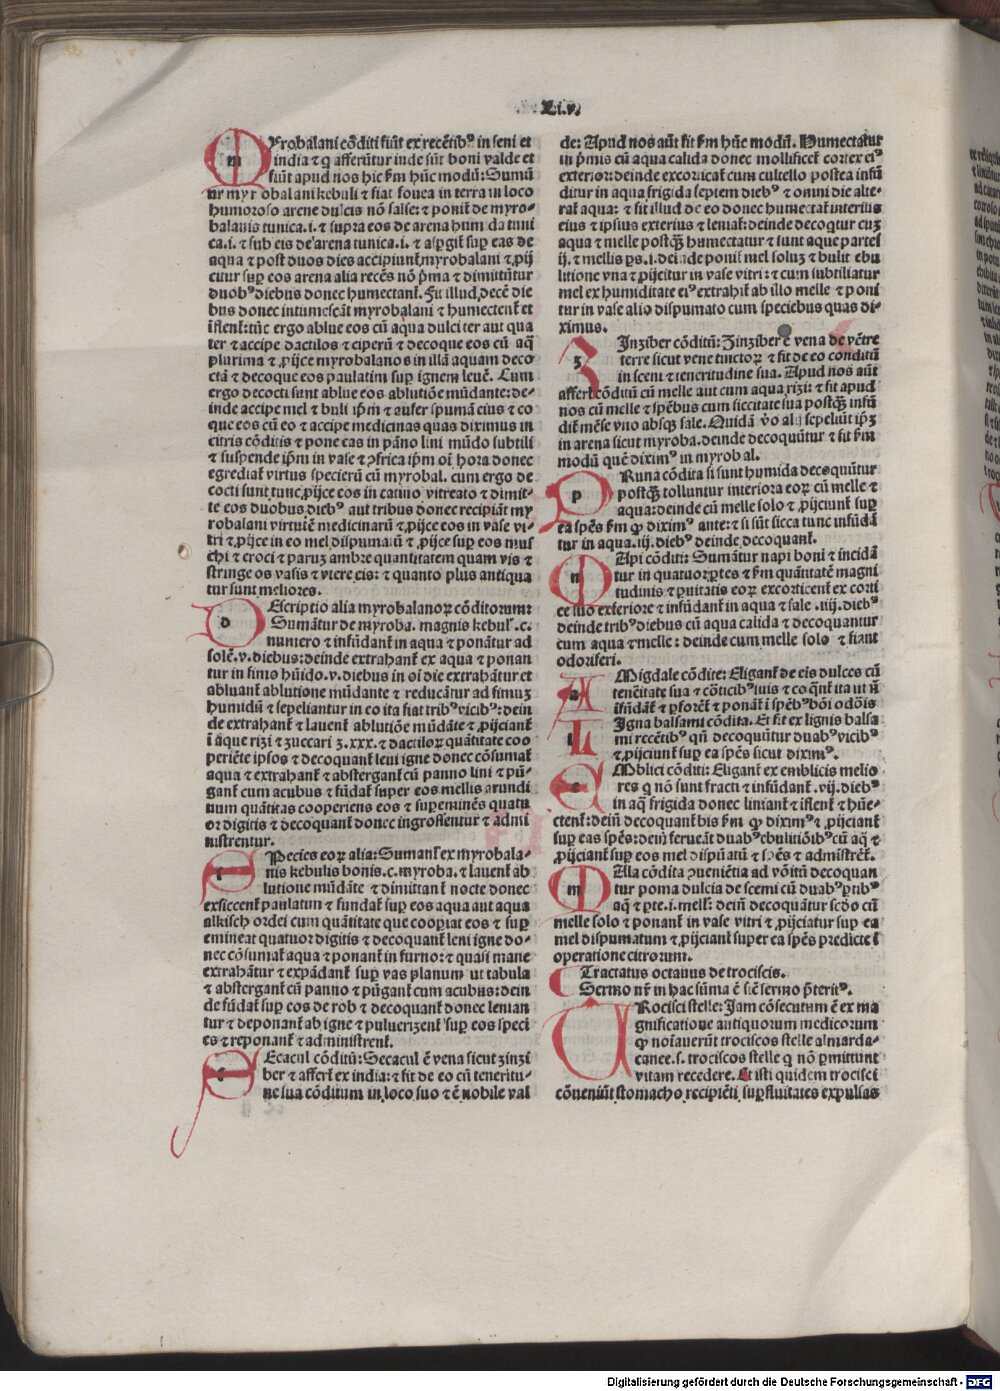 L.i.v.
MYrobalani cõditi fiũt ex recẽtibꝰ in seni et
india ⁊ q̃ afferũtur inde sũt boni valde et
fiũt apud nos hic ẜm hũc modũ: Sumũ
tur myrobalani kebuli ⁊ fiat fouea in terra in loco
humoroso arene dulcis nõ salse: ⁊ poniť de myro-
balanis tunica .i. ⁊ supra eos de arena humida tuni
ca .i. ⁊ sub eis de arena tunica .i. ⁊ aspgiť sup eas de
aqua ⁊ post duos dies accipiunť myrobalani ⁊ ꝓij
ciũtur sup eos arena alia recẽs nõ p̃ma ⁊ dimittũtur
duobꝰ diebus donec humectanť. Fit illud decẽ die
bus donec intumescãt myrobalani ⁊ humectenť et
iflenť: tũc ergo ablue eos cũ aqua dulci ter aut qua
ter ⁊ accipe dactilos ⁊ ciperũ ⁊ decoque eos cũ aq̃
plurima ⁊ ꝓijce myrobalanos in illã aquam deco
ctã ⁊ decoque eos paulatim sup ignem leuẽ. Cum
ergo decocti sunt ablue eos ablutiõe mũdante: de-
inde accipe mel ⁊ buli ip̃m ⁊ aufer spumã eius ⁊ co
que eos cũ eo ⁊ accipe medicinas quas diximus in
citris cõditis ⁊ pone eas in pãno lini mũdo subtili
⁊ suspende ip̃m in vase ⁊ ꝯfrica ip̃m oĩ hora donec
egrediať virtus specierũ cũ myrobal. cum ergo de
cocti sunt tunc ꝓijce eos in catino vitreato ⁊ dimit-
te eos duobus diebꝰ aut tribus donec recipiãt my
robalani virtutẽ medicinarũ ⁊ ꝓijce eos in vase vi-
tri ⁊ ꝓijce in eo mel dispumatũ ⁊ ꝓijce sup eos mus
chi ⁊ croci ⁊ paruꝫ ambre quantitatem quam vis ⁊
stringe os vasis ⁊ vtere eis: ⁊ quanto plus antiqua
tur sunt meliores.
DEscriptio alia myrobalanoꝝ cõditorum:
Sumãtur de myroba. magnis kebul. .c.
numero ⁊ infũdanť in aqua ⁊ ponãtur ad
solẽ .v. diebus: deinde extrahanť ex aqua ⁊ ponan
tur in fimis hũido .v. diebus in oĩ die extrahãtur et
abluanť ablutione mũdante ⁊ reducãtur ad fimuꝫ
humidũ ⁊ sepeliantur in eo ita fiat tribꝰ vicibꝰ: dein
de extrahanť ⁊ lauenť ablutiõe mũdãte ⁊ ꝓijcianť
ĩ aque rizi ⁊ zuccari ʒ.xxx. ⁊ dactiloꝝ quãtitate coo
periẽte ipsos ⁊ decoquanť leui igne donec cõsumať
aqua ⁊ extrahanť ⁊ absterganť cũ panno lini ⁊ pũ-
ganť cum acubus ⁊ fũdať super eos mellis arundi
num quãtitas cooperiens eos ⁊ supeminẽs quatu
or digitis ⁊ decoquanť donec ingrossentur ⁊ admi
nistrentur.
SPecies eoꝝ alia: Sumanť ex myrobala-
nis kebulis bonis .c. myroba. ⁊ lauenť ab
lutione mũdãte ⁊ dimittanť nocte donec
exsiccenť paulatim ⁊ fundať sup eos aqua aut aqua
alkisch ordei cum quãtitate que coopiat eos ⁊ sup
emineat quatuor digitis ⁊ decoquanť leni igne do-
nec cõsumať aqua ⁊ ponanť in furno: ⁊ quasi mane
extrahãtur ⁊ expãdanť sup vas planum ut tabula
⁊ absterganť cũ panno ⁊ pũganť cum acubus: dein
de fũdať sup eos de rob ⁊ decoquanť donec lenian
tur ⁊ deponanť ab igne ⁊ puluerizenť sup eos speci
es ⁊ reponanť ⁊ administrenť.
SEcacul cõditũ: Secacul ẽ vena sicut zinzi
ber ⁊ afferť ex india: ⁊ fit de eo cũ teneritu-
ne sua cõditum in loco suo ⁊ ẽ nobile val
de: Apud nos aũt fit ẜm hũc modũ. Humectatur
in p̃mis cũ aqua calida donec mollificeť cortex eiꝰ
exterior: deinde excoricať cum cultello postea infũ
ditur in aqua frigida septem diebꝰ ⁊ omni die alte-
rať aqua: ⁊ fit illud de eo donec humectať interius
eius ⁊ ipsius exterius ⁊ leniať: deinde decoqtur cuꝫ
aqua ⁊ melle postq̃ꝫ humectatur ⁊ sunt aque partes
ij. ⁊ mellis ps .i. deinde poniť mel soluꝫ ⁊ bulit ebu
litione vna ⁊ ꝓijcitur in vase vitri: ⁊ cum subtiliatur
mel ex humiditate eiꝰ extrahiť ab illo melle ⁊ poni
tur in vase alio dispumato cum speciebus quas di-
ximus.
ZInziber cõditũ: Zinziber ẽ vena de vẽtre
terre sicut vene tinctoꝝ ⁊ fit de eo conditũ
in sceni ⁊ teneritudine sua. Apud nos aũt
afferť cõditũ cũ melle aut cum aqua rizit ⁊ fit apud
nos cũ melle ⁊ spẽbus cum siccitate sua postq̃ꝫ infũ
diť mẽse vno absqꝫ sale. Quidã vo alij sepeliũt ip̃ꝫ
in arena sicut myroba. deinde decoquũtur ⁊ fit ẜm
modũ quẽ diximꝰ in myrobal.
PRuna cõdita si sunt humida decoquũtur
postq̃ꝫ tolluntur interiora eoꝝ cũ melle ⁊
aqua: deinde cũ melle solo ⁊ ꝓijciunť sup
ea spẽs ẜm ꝙ diximꝰ ante: ⁊ si sũt sicca tunc infũdã
tur in aqua .iij. diebꝰ deinde decoquanť.
NApi cõditi: Sumãtur napi boni ⁊ incidã
tur in quatuoꝛ ptes ⁊ ẜm quãtitatẽ magni
tudinis ⁊ puitatis eoꝝ excorticenť ex corti
ce suo exteriore ⁊ infũdanť in aqua ⁊ sale .iiij. diebꝰ
deinde tribꝰ diebus cũ aqua calida ⁊ decoquantur
cum aqua ⁊ melle: deinde cum melle solo ⁊ fiant
odoriferi.
AMigdale cõdite: Eliganť de eis dulces cũ
tenẽitate sua ⁊ cõticibꝰ suis ⁊ eo q̃nť ita ut ñ
ĩfũdãť ⁊ pforẽť ⁊ ponãť ĩ spẽbꝰ bõi odõis
LIgna balsami cõdita. Et fit ex lignis balsa
mi recẽtibꝰ qñ decoquũtur duabꝰ vicibꝰ
⁊ ꝓijciunť sup ea spẽs sicut diximꝰ.
EMblici cõditi: Eliganť ex emblicis melio
res q̃ nõ sunt fracti ⁊ infũdanť .vij. diebꝰ
in aq̃ frigida donec linianť ⁊ iflenť ⁊ hũe-
ctenť: deiñ decoquanť bis ẜm ꝙ diximꝰ ⁊ ꝓijcianť
sup eas spẽs: deiñ feruеãt duabꝰ ebulitiõibꝰ cũ aq̃ ⁊
ꝓijcianť sup eos mel dispũatũ ⁊ spẽs ⁊ admistrẽť.
MAlla cõdita ꝓueniẽtia ad võitũ decoquan
tur poma dulcia de scemi cũ duabꝰ ptibꝰ
aq̃ ⁊ pte .i. mell: deiñ decoquãtur scdo cũ
melle solo ⁊ ponanť in vase vitri ⁊ ꝓijciatur sup ea
mel dispumatum ⁊ ꝓijcianť super ea spẽs predicte ĩ
operatione citrorum.
Tractatus octauus de trociscis.
Sermo nř in hac sũma ẽ sič sermo p̃teritꝰ.
TRocisci stelle: Jam cõsecutum ẽ ex ma
gnificatione antiquorum medicorum
ꝙ noiauerũt trociscos stelle almarda-
canee .s. trociscos stelle q̃ nõ pmittunt
vitam recedere. Et isti quidem trocisci
cõueniũt stomacho recipiẽti supfluitates expulsas
Digitalisierung gefördert durch die Deutsche Forschungsgemeinschaft - DFG